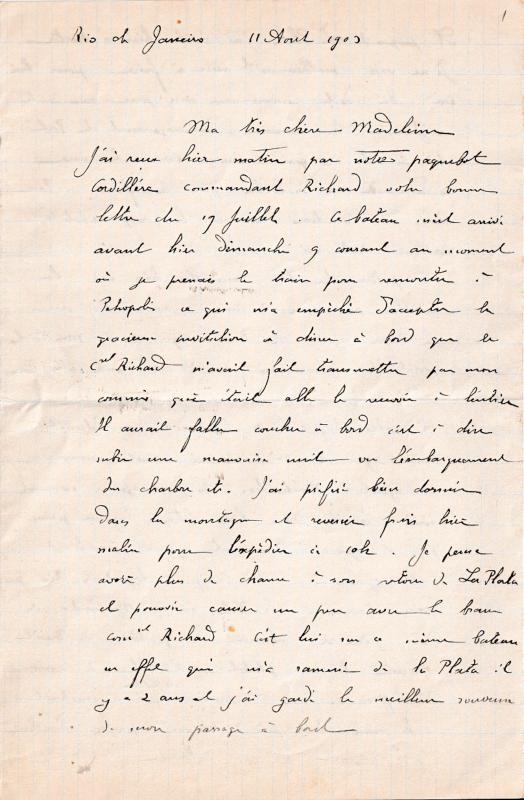 1
Rio de Janeiro 11 Aout 1903
Ma très chère Madeleine
J'ai reçu hier matin par notre paquebot
Cordillère commandant Richard votre bonne
lettre du 17 Juillet. Ce bateau m'est arrivé
avant hier dimanche 9 courant au moment
où je prenais le train pour remonter à
Petropolis ce qui m'a empêché d'accepter la
gracieuse invitation à diner à bord que le
Cnt Richard m'avait fait transmettre par mon
commis qui était allé le recevoir à l'entrée
Il aurait fallu coucher à bord c'est à dire
subir une mauvaise nuit vu l'embarquement
du charbon etc. J'ai préféré bien dormir
dans la montagne et revenir frais hier
matin pour l'expédier à 10h. Je pense
avoir plus de chance à son retour de La Plata
et pouvoir causer un peu avec le brave
comt Richard C'est lui sur ce même bateau
en effet qui m'a ramené de la Plata il
y a 2 ans et j'ai gardé le meilleur souvenir
de mon passage à bord